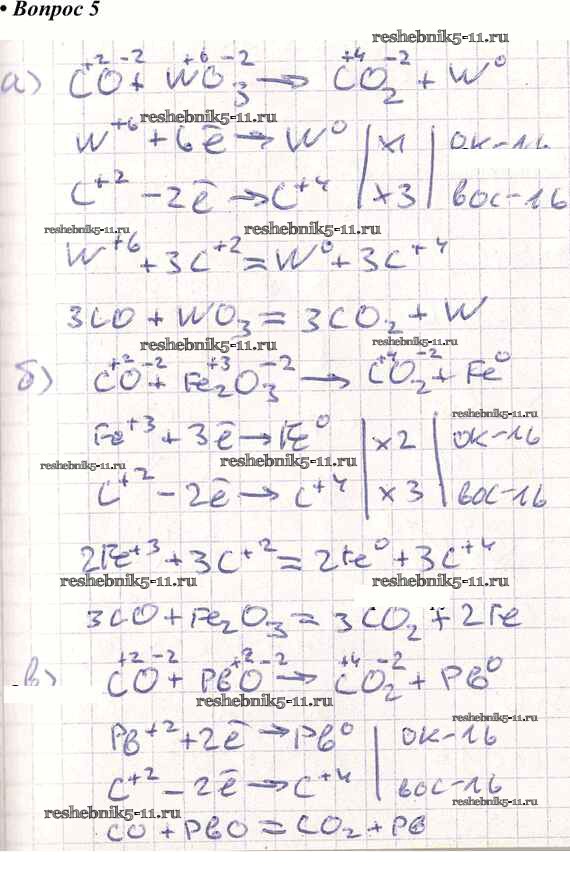 • Вопрос 5
reshebnik5-11.ru
а) C⁺²O⁻² + W⁺⁶O₃⁻² → C⁺⁴O₂⁻² + W⁰
reshebnik5-11.ru
W⁺⁶ + 6ē → W⁰ | ×1 | ок-ль
C⁺² - 2ē → C⁺⁴ | ×3 | вос-ль
reshebnik5-11.ru reshebnik5-11.ru
W⁺⁶ + 3C⁺² = W⁰ + 3C⁺⁴
3CO + WO₃ = 3CO₂ + W
reshebnik5-11.ru reshebnik5-11.ru
б) C⁺²O⁻² + Fe₂⁺³O₃⁻² → C⁺⁴O₂⁻² + Fe⁰
reshebnik5-11.ru
Fe⁺³ + 3ē → Fe⁰ | ×2 | ок-ль
reshebnik5-11.ru reshebnik5-11.ru
C⁺² - 2ē → C⁺⁴ | ×3 | вос-ль
reshebnik5-11.ru
2Fe⁺³ + 3C⁺² = 2Fe⁰ + 3C⁺⁴
reshebnik5-11.ru reshebnik5-11.ru
3CO + Fe₂O₃ = 3CO₂ + 2Fe
в) C⁺²O⁻² + Pb⁺²O⁻² → C⁺⁴O₂⁻² + Pb⁰
reshebnik5-11.ru
reshebnik5-11.ru
Pb⁺² + 2ē → Pb⁰ | ок-ль
C⁺² - 2ē → C⁺⁴ | вос-ль
reshebnik5-11.ru reshebnik5-11.ru
CO + PbO = CO₂ + Pb